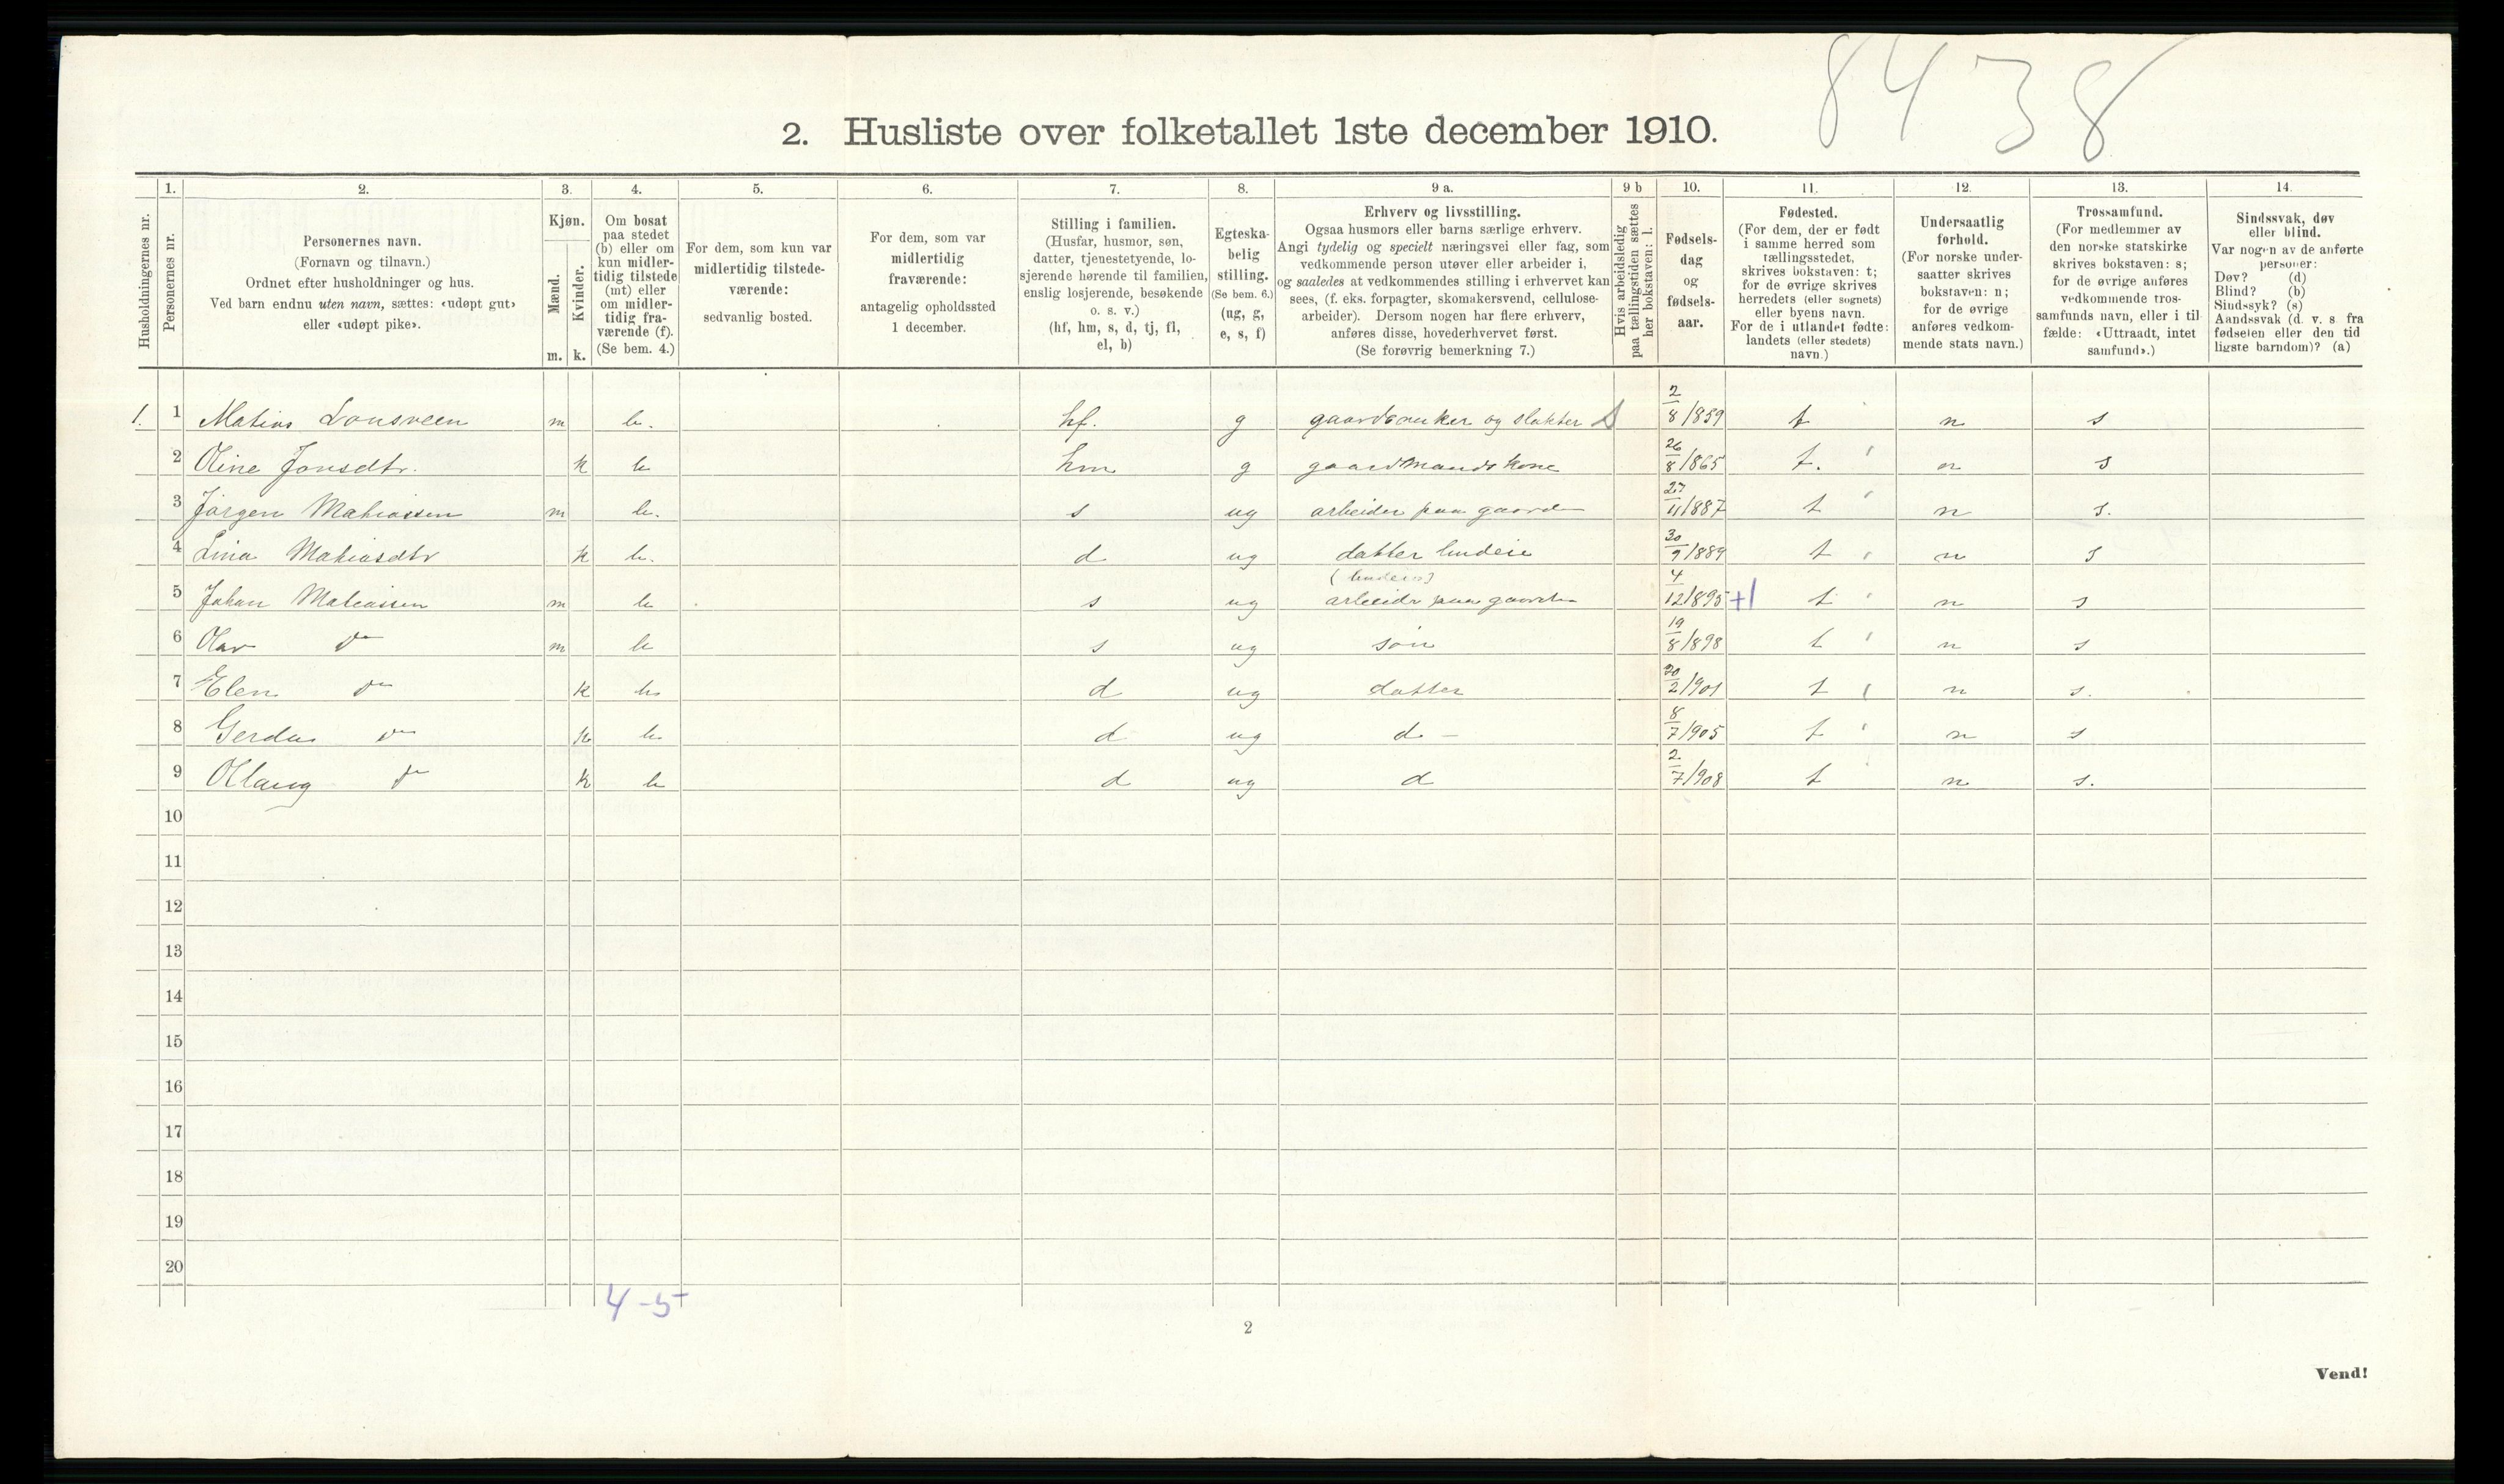 8438
2. Husliste over folketallet 1ste december 1910.
Husholdningernes nr.
1.
Personernes nr.
2.
Personernes navn.
(Fornavn og tilnavn.)
Ordnet efter husholdninger og hus.
Ved barn endnu uten navn, sættes: «udøpt gut»
eller «udøpt pike».
3.
Kjøn.
Mænd.
Kvinder.
m. k.
4.
Om bosat
paa stedet
(b) eller om
kun midler-
tidig tilstede
(mt) eller
om midler-
tidig fra-
værende (f).
(Se bem. 4.)
5.
For dem, som kun var
midlertidig tilstede-
værende:
sedvanlig bosted.
6.
For dem, som var
midlertidig
fraværende:
antagelig opholdssted
1 december.
7.
Stilling i familien.
(Husfar, husmor, søn,
datter, tjenestetyende, lo-
sjerende hørende til familien,
enslig losjerende, besøkende
o. s. v.)
(hf, hm, s, d, tj, fl,
el, b)
8.
Egteska-
belig
stilling.
(Se bem. 6.)
(ug, g,
e, s, f)
9 a.
Erhverv og livsstilling.
Ogsaa husmors eller barns særlige erhverv.
Angi tydelig og specielt næringsvei eller fag, som
vedkommende person utøver eller arbeider i,
og saaledes at vedkommendes stilling i erhvervet kan
sees, (f. eks. forpagter, skomakersvend, cellulose-
arbeider). Dersom nogen har flere erhverv,
anføres disse, hovederhvervet først.
(Se forøvrig bemerkning 7.)
9 b
Hvis arbeidsledig
paa tællingstiden sættes
her bokstaven: l.
10.
Fødsels-
dag
og
fødsels-
aar.
11.
Fødested.
(For dem, der er født
i samme herred som
tællingsstedet,
skrives bokstaven: t;
for de øvrige skrives
herredets (eller sognets)
eller byens navn.
For de i utlandet fødte:
landets (eller stedets)
navn.)
12.
Undersaatlig
forhold.
(For norske under-
saatter skrives
bokstaven: n;
for de øvrige
anføres vedkom-
mende stats navn.)
13.
Trossamfund.
(For medlemmer av
den norske statskirke
skrives bokstaven: s;
for de øvrige anføres
vedkommende tros-
samfunds navn, eller i til
fælde: «Uttraadt, intet
samfund».)
14.
Sindssvak, døv
eller blind.
Var nogen av de anførte
personer:
Døv? (d)
Blind? (b)
Sindssyk? (s)
Aandssvak (d. v. s. fra
fødselen eller den tid
ligste barndom)? (a)
1. 1 Matias Lonsveen m b. hf. g gaardbruker og slakter 2/8/859 t n s
2 Oline Jonsdtr. k b hm g gaardmandskone 26/8/865 t. n s
3 Jørgen Matiassen m b. s ug arbeider paa gaarden 27/11/887 t n s.
4 Lina Matiasdtr k b. d ug datter budeie 30/9/889 t n s
(budeie)
5 Johan Matiassen m b s ug arbeide paa gaarden 4/12/895 +1 t n s
6 Olav do m b s ug søn 19/8/898 t n s
7 Elen do k b d ug datter 20/2/901 t n s.
8 Gerda do k b d ug d. - 8/7/905 t n s
9 Ollaug do k b d ug d 2/7/908 t n s.
10
11
12
13
14
15
16
17
18
19
20
4-5
2
Vend!